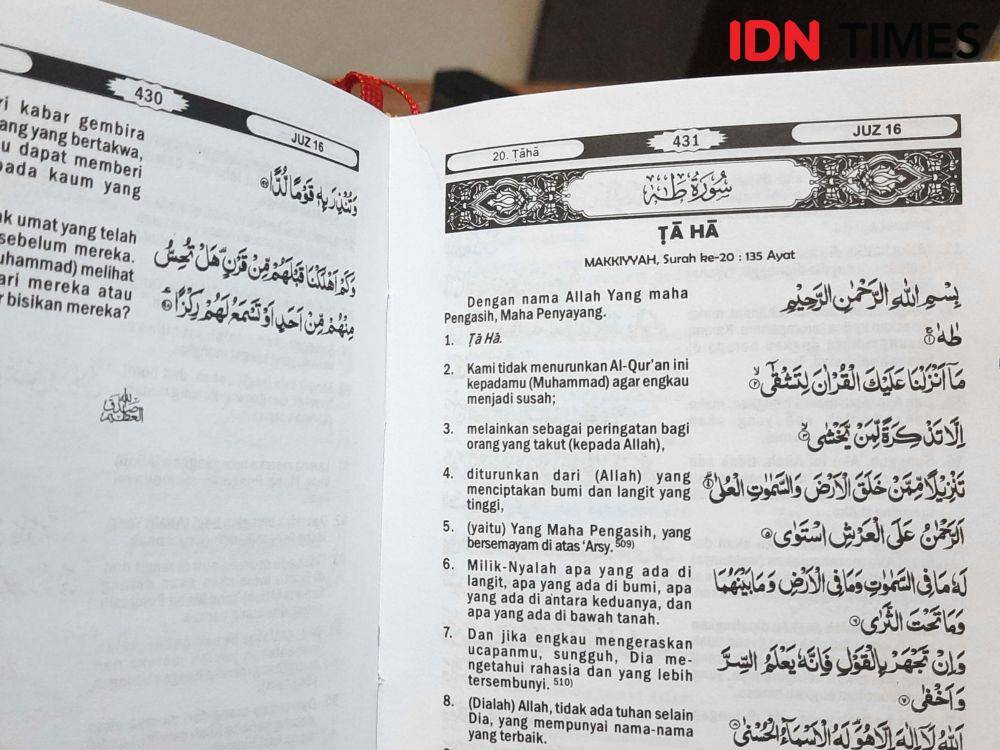 IDN TIMES
430
JUZ 16
ri kabar gembira
ang yang bertakwa,
u dapat memberi
pada kaum yang
وَتُنْذِرَ بِهٖ قَوْمًا لُّدًّا
ak umat yang telah
sebelum mereka.
uhammad) melihat
ari mereka atau
r bisikan mereka?
وَكَمْ اَهْلَكْنَا قَبْلَهُمْ مِّنْ قَرْنٍۗ هَلْ تُحِسُّ
مِنْهُمْ مِّنْ اَحَدٍ اَوْ تَسْمَعُ لَهُمْ رِكْزًا
صدق الله العظيم
20. Ṭāhā
431
JUZ 16
سُوْرَةُ طٰهٰ
ṬĀ HĀ
MAKKIYYAH, Surah ke-20 : 135 Ayat
Dengan nama Allah Yang maha
Pengasih, Maha Penyayang.
بِسْمِ اللّٰهِ الرَّحْمٰنِ الرَّحِيْمِ
1. Ṭā Hā.
طٰهٰ ۚ ١
2. Kami tidak menurunkan Al-Qur'an ini
kepadamu (Muhammad) agar engkau
menjadi susah;
مَآ اَنْزَلْنَا عَلَيْكَ الْقُرْاٰنَ لِتَشْقٰٓى ۙ ٢
3. melainkan sebagai peringatan bagi
orang yang takut (kepada Allah),
اِلَّا تَذْكِرَةً لِّمَنْ يَّخْشٰى ۙ ٣
4. diturunkan dari (Allah) yang
menciptakan bumi dan langit yang
tinggi,
تَنْزِيْلًا مِّمَّنْ خَلَقَ الْاَرْضَ وَالسَّمٰوٰتِ الْعُلٰى ۗ ٤
5. (yaitu) Yang Maha Pengasih, yang
bersemayam di atas 'Arsy. 509)
اَلرَّحْمٰنُ عَلَى الْعَرْشِ اسْتَوٰى ٥
6. Milik-Nyalah apa yang ada di
langit, apa yang ada di bumi, apa
yang ada di antara keduanya, dan
apa yang ada di bawah tanah.
لَهٗ مَا فِى السَّمٰوٰتِ وَمَا فِى الْاَرْضِ وَمَا بَيْنَهُمَا
وَمَا تَحْتَ الثَّرٰى ٦
7. Dan jika engkau mengeraskan
ucapanmu, sungguh, Dia me-
ngetahui rahasia dan yang lebih
tersembunyi. 510)
وَاِنْ تَجْهَرْ بِالْقَوْلِ فَاِنَّهٗ يَعْلَمُ السِّرَّ
وَاَخْفٰى ٧
8. (Dialah) Allah, tidak ada tuhan selain
Dia, yang mempunyai nama-nama
yang terbaik.
اَللّٰهُ لَآ اِلٰهَ اِلَّا هُوَۗ لَهُ الْاَسْمَاۤءُ الْحُسْنٰى ٨